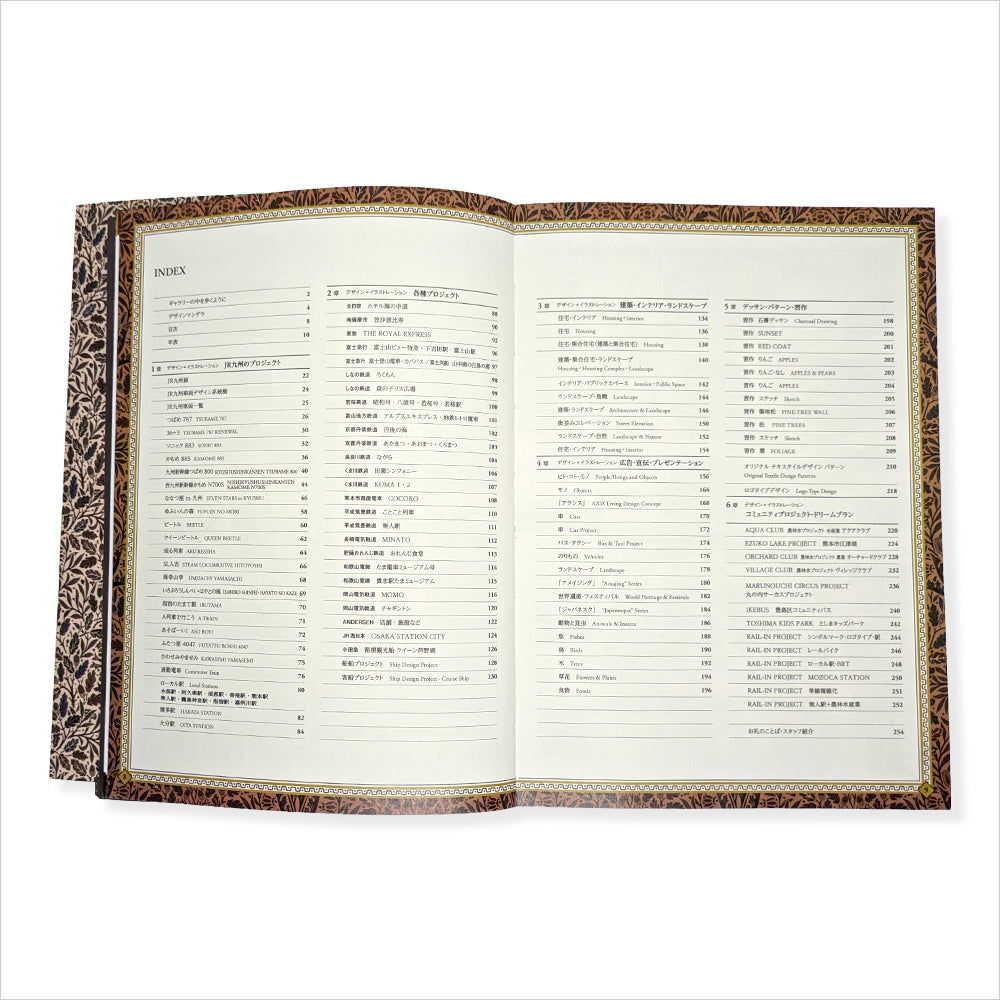 INDEX
ギャラリーの中を歩くように 2
デザインマンダラ 4
目次 8
年表 10
1章 デザイン+イラストレーション JR九州のプロジェクト
JR九州線 22
JR九州車両デザイン系統樹 24
JR九州車両一覧 25
つばめ 787 TSUBAME 787 26
36+3 TSUBAME 787 RENEWAL 30
ソニック 883 SONIC 883 32
かもめ 885 KAMOME 885 36
九州新幹線つばめ 800 KYUSHUSHINKANSEN TSUBAME 800 40
西九州新幹線かもめ N700S NISHIKYUSHUSHINKANSEN KAMOME N700S 44
ななつ星 in 九州 SEVEN STARS in KYUSHU 46
ゆふいんの森 YUFUIN NO MORI 58
ビートル BEETLE 60
クイーンビートル QUEEN BEETLE 62
或る列車 ARU RESSHA 64
SL人吉 STEAM LOCOMOTIVE HITOYOSHI 66
海幸山幸 UMISACHI YAMASACHI 68
いさぶろうしんぺい・はやとの風 ISABURO SHINPEI・HAYATO NO KAZE 69
指宿のたまて箱 IBUTAMA 70
A列車で行こう A TRAIN 71
あそぼーい! ASO BOY! 72
ふたつ星 4047 FUTATSU BOSHI 4047 74
かわせみやませみ KAWASEMI YAMASEMI 75
通勤電車 Commuter Train 76
ローカル駅 Local Stations 80
博多駅 HAKATA STATION 82
大分駅 OITA STATION 84
2章 デザイン+イラストレーション 各種プロジェクト
全日空 ホテル海の中道 88
南薩摩市 笠沙恵比寿 90
東急 THE ROYAL EXPRESS 92
富士急行 富士山ビュー特急・下吉田駅・富士山駅 96
しなの鉄道 ろくもん 98
しなの鉄道 森のデリス広場 99
若桜鉄道 昭和号・八頭号・若桜号・若桜駅 100
富山地方鉄道 アルプスエキスプレス・地鉄レトロ電車 101
京都丹後鉄道 丹後の海 102
京都丹後鉄道 あかまつ・あおまつ・くろまつ 103
長良川鉄道 ながら 104
くま川鉄道 田園シンフォニー 106
くま川鉄道 KUMA 1・2 107
熊本市路面電車 COCORO 108
平成筑豊鉄道 ことこと列車 110
平成筑豊鉄道 無人駅 111
長崎電気軌道 MINATO 112
肥薩おれんじ鉄道 おれんじ食堂 113
和歌山電鐵 たま電車ミュージアム号 114
和歌山電鐵 貴志駅たまミュージアム 115
岡山電気軌道 MOMO 116
岡山電気軌道 チャギントン 120
ANDERSEN 店舗・施設など 122
JR西日本 OSAKA STATION CITY 124
小田急 箱根観光船 クイーン芦野湖 126
船舶プロジェクト Ship Design Project 128
客船プロジェクト Ship Design Project・Cruise Ship 130
8
3章 デザイン+イラストレーション 建築・インテリア・ランドスケープ
住宅・インテリア Housing・Interior 134
住宅 Housing 136
住宅・集合住宅(建築と集合住宅) Housing 138
建築・集合住宅・ランドスケープ 140
Housing・Housing Complex・Landscape
インテリア・パブリックスペース Interior・Public Space 142
ランドスケープ・鳥瞰 Landscape 144
建築・ランドスケープ Architecture & Landscape 146
街並みエレベーション Street Elevation 150
ランドスケープ・自然 Landscape & Nature 152
住宅・インテリア Housing・Interior 154
4章 デザイン+イラストレーション 広告・宣伝・プレゼンテーション
ヒト・コト・モノ People,Things and Objects 156
モノ Objects 164
「アクシス」 AXIS Living Design Concept 168
車 Cars 170
車 Car Project 172
バス・タクシー Bus & Taxi Project 174
のりもの Vehicles 176
ランドスケープ Landscape 178
「アメイジング」 "Amazing" Series 180
世界遺産・フェスティバル World Heritage & Festivals 182
「ジャパネスク」 "Japanesque" Series 184
動物と昆虫 Animals & Insects 186
魚 Fishes 188
鳥 Birds 190
木 Trees 192
草花 Flowers & Plants 194
食物 Foods 196
5章 デッサン・パターン・習作
習作 石膏デッサン Charcoal Drawing 198
習作 SUNSET 200
習作 RED COAT 201
習作 りんご APPLES 202
習作 りんご・なし APPLES & PEARS 203
習作 りんご APPLES 204
習作 スケッチ Sketch 205
習作 築地松 PINE-TREE WALL 206
習作 松 PINE TREES 207
習作 スケッチ Sketch 208
習作 葉 FOLIAGE 209
オリジナル テキスタイルデザイン パターン 210
Original Textile Design Patterns
ロゴタイプデザイン Logo Type Design 218
6章 デザイン+イラストレーション
コミュニティプロジェクト・ドリームプラン
AQUA CLUB 農林水プロジェクト 水産業 アクアクラブ 220
EZUKO LAKE PROJECT 熊本市江津湖 224
ORCHARD CLUB 農林水プロジェクト 農業 オーチャードクラブ 228
VILLAGE CLUB 農林水プロジェクト ヴィレッジクラブ 232
MARUNOUCHI CIRCUS PROJECT 236
丸の内サーカスプロジェクト
IKEBUS 豊島区コミュニティバス 240
TOSHIMA KIDS PARK としまキッズパーク 242
RAIL-IN PROJECT シンボルマーク・ロゴタイプ・駅 244
RAIL-IN PROJECT レールバイク 246
RAIL-IN PROJECT ローカル駅・BRT 248
RAIL-IN PROJECT MOZOCA STATION 250
RAIL-IN PROJECT 単線複線化 251
RAIL-IN PROJECT 無人駅+農林水産業 252
お礼のことば・スタッフ紹介 254
9